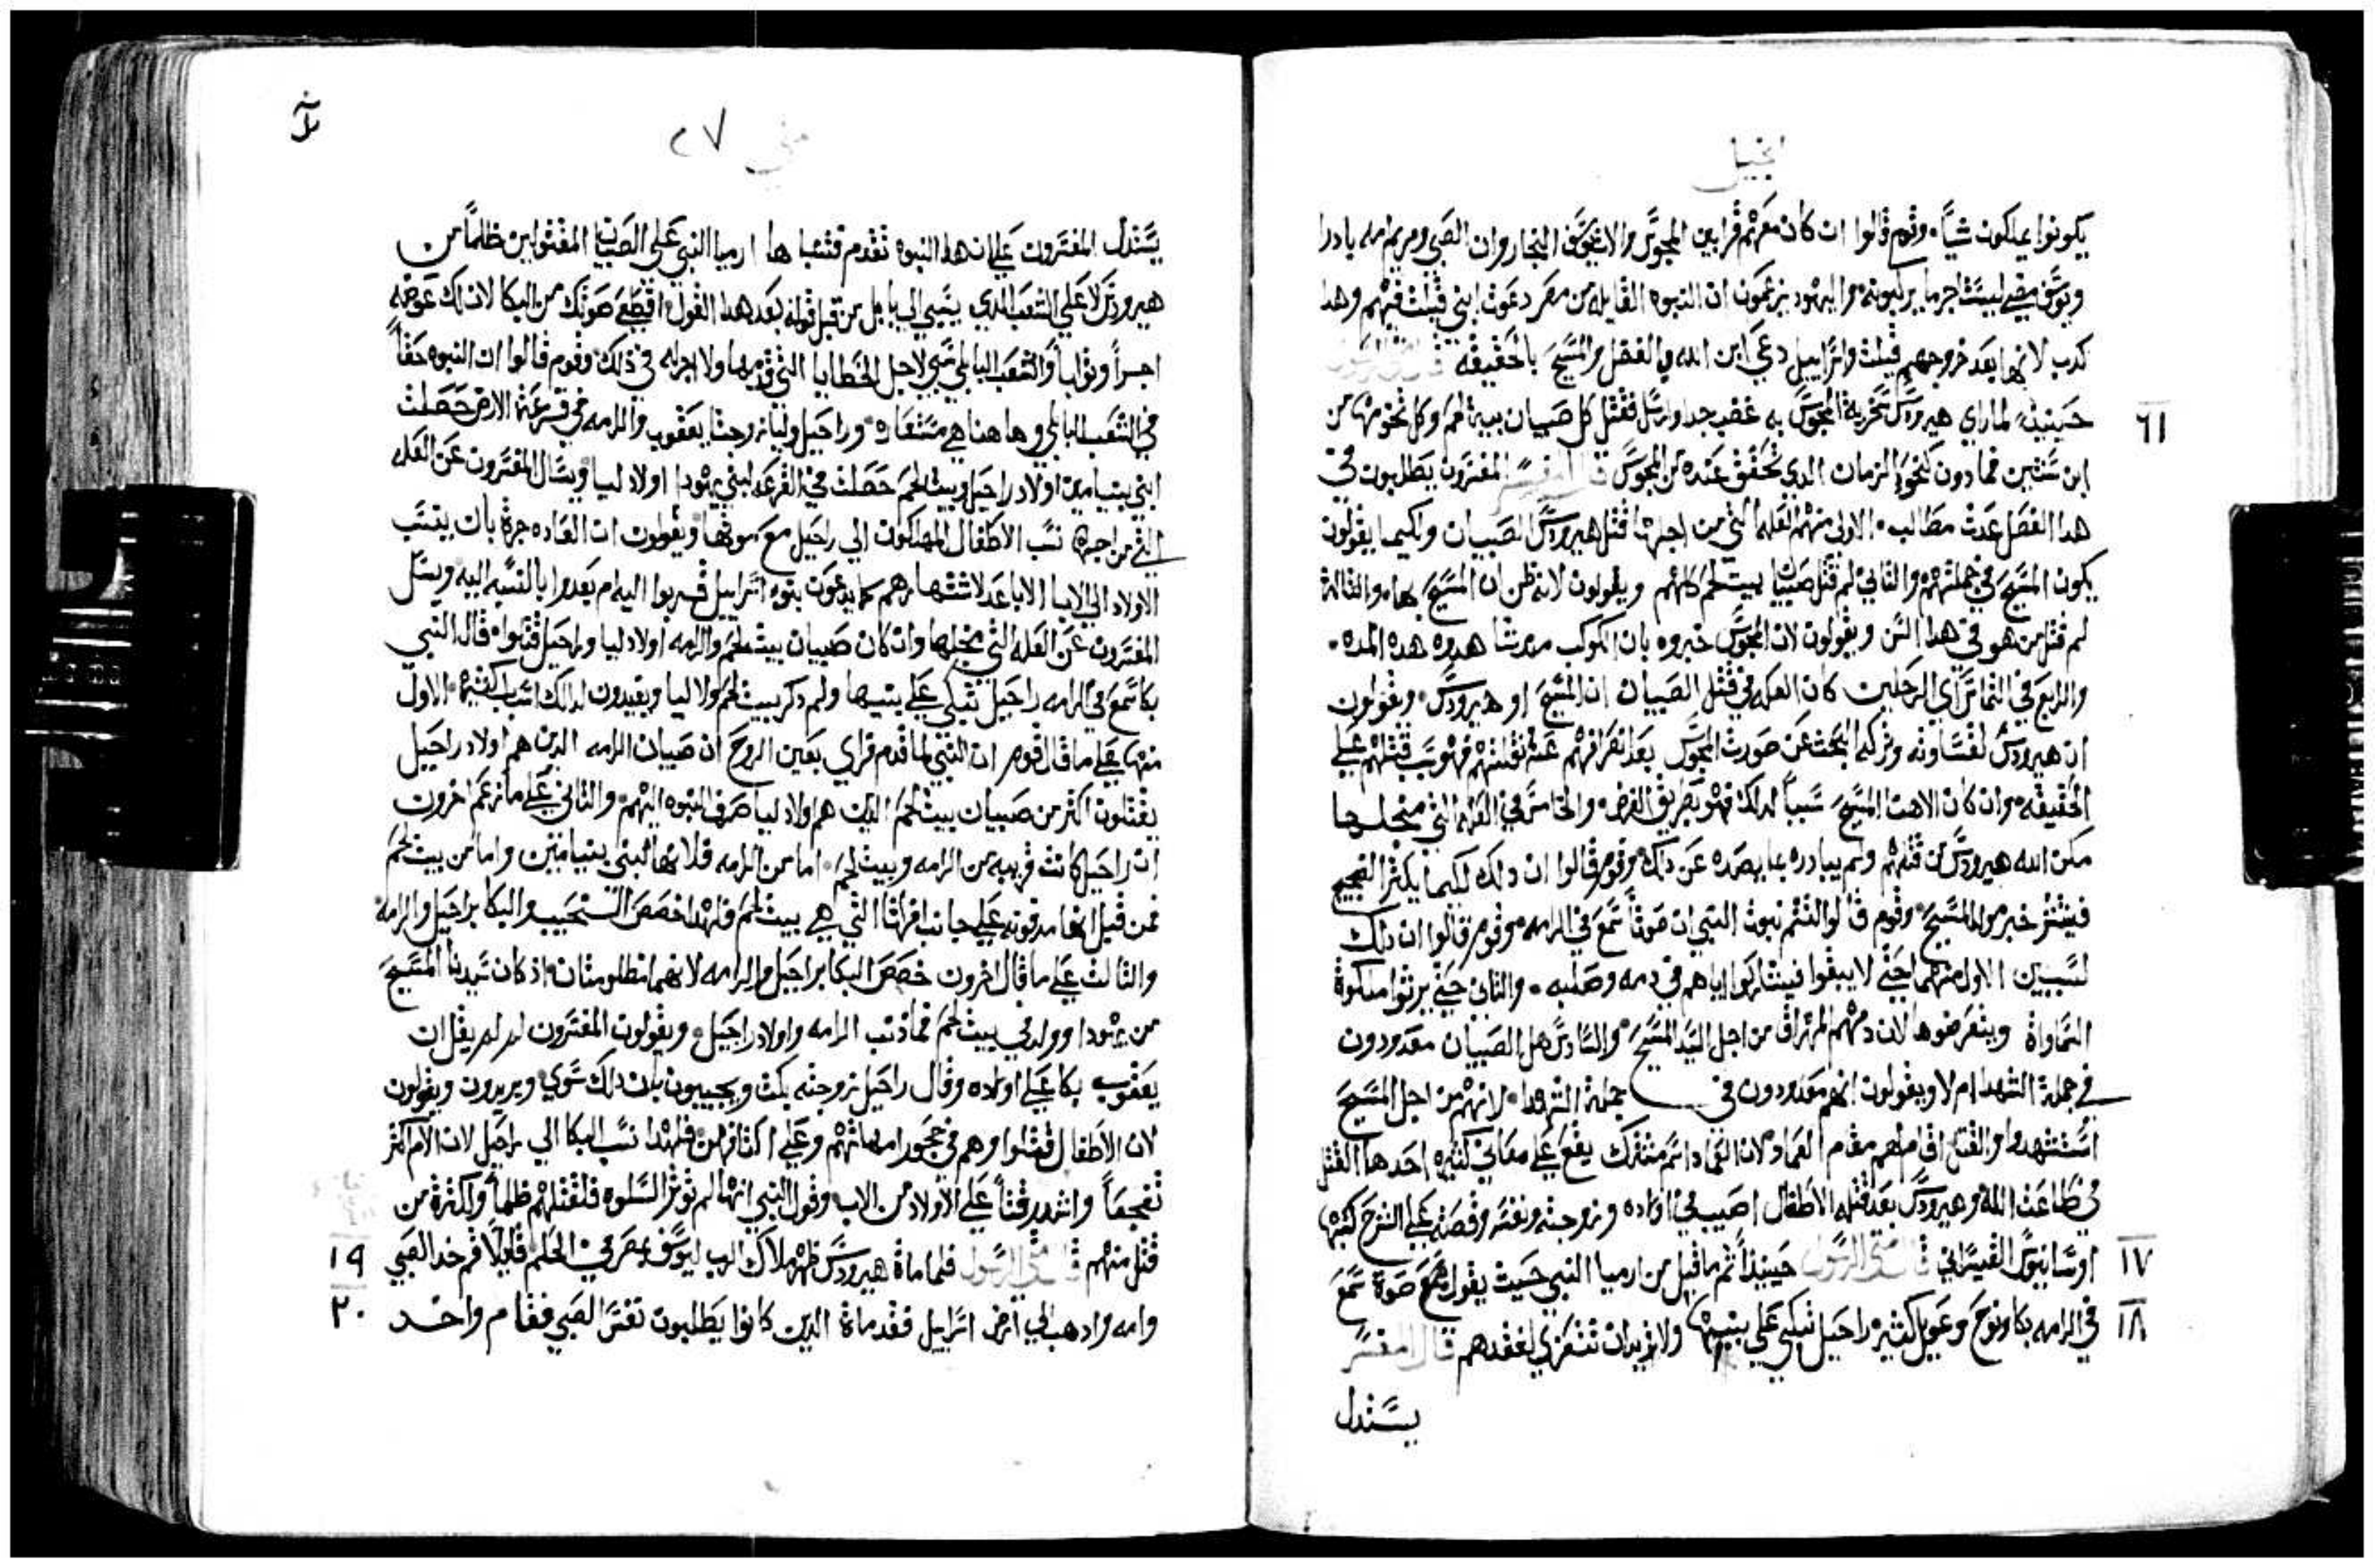 انجيل
يكونوا يملكون شيئًا وقوم قالوا ان كان معهم قرابين المجوس والا يوسف النجار وان الصبي ومريم امه بادرا
ويوسف بقي ليستاجر ما يركبونه واليهود يزعمون ان النبوه القايله من مصر دعوت ابني قيلت فيهم وهدا
كدب لانها بعد خروجهم قيلت واسراييل دعي ابن الله بالفضل والمسيح بالحقيقه قال متي الرسول
١٦ حينيذ لما راي هيرودس سخرية المجوس به غضب جدا وارسل فقتل كل صبيان بيت لحم وكل تخومها من
ابن سنتين فما دون كنحو الزمان الدي تحقق عنده من المجوس قال المفسر المفسرون يطلبون في
هدا الفصل عدت مطالب الاول منهم العله التي من اجلها قتل هيرودس الصبيان ولكيما يقولون
يكون المسيح في جملتهم والثاني لم قتل صبيان بيت لحم كلهم ويقولون لانه ظن ان المسيح بها والثالث
لم قتل من هو في هدا السن ويقولون لان المجوس خبروه بان الكوكب مدة هده المده
والرابع في التماس اي الرجلين كان العله في قتل الصبيان المسيح او هيرودس ويقولون
ان هيرودس لقساوته وتركه البحث عن صورت المجوس بعد انصرافهم عنه فهو سبب قتلهم علي
الحقيقه وان كان المسيح سبباً لدلك فهو بطريق العرض والخامس في العله التي من اجلها
مكن الله هيرودس من قتلهم ولم يبادره بما يصده عن دلك وقوم قالوا ان دلك لكيما يكثر الضجيج
فينتشر خبر مولد المسيح وقوم قالوا لتتم نبوت النبي ان صوتاً سمع في الرامه وقوم قالوا ان دلك
لسببين الاول منهما حتي لا يبقوا فيشاركوا اباهم في دمه وصلبه والثاني حتي يرثوا ملكوة
السماواة لان دمهم اهراق من اجل السيد المسيح والسادس هل الصبيان معدودون
في جملة الشهدا ام لا ويقولون انهم معدودون في جملة الشهدا لانهم من اجل المسيح
استشهدوا والقتل اقامهم مقام العماد لان العماد اسم مشترك يقع علي معاني كثيره احدها القتل
في طاعت الله وهيرودس بعد قتله الاطفال اصيب في اولاده وزوجته ونفسه وقصته علي الشرح كتبها
١٧ اوسابيوس القيسراني قال متي الرسول حينيذاً تم ما قيل من ارميا النبي حيت يقول صوة سمع
١٨ في الرامه بكا ونوح وعويل كثير راحيل تبكي علي بنيها ولا تريد ان تتعزي لفقدهم قال المفسر
يستدل
متي ٢٧
يستدل المفسرون علي ان هده النبوه تقدم فتنبا بها ارميا النبي علي الصبيان المقتولين ظلماً من
هيرودس لا علي الشعب الدي سبي الي بابل من قبل قوله بعد هدا القول اقطع صوتك من البكا لان لك عوضه
اجراً وثواباً والشعب البابلي سبي لاجل الخطايا التي قدمها ولا اجر له في ذلك وقوم قالوا ان النبوه حقاً
في الشعب البابلي وها هنا هي مستعاره وراحيل وليا زوجتا يعقوب والرامه في قرعة الارض حصلت
لبني بنيامين اولاد راحيل وبيت لحم حصلت في القرعه لبني يهودا اولاد ليا ويسال المفسرون عن العله
التي من اجلها نسب الاطفال المهلكون الي راحيل مع موتها ويقولون ان العاده جرة بان ينسب
الاولاد الي الابا الاباعد لاشتهارهم كما يدعون بنوه اسراييل قربوا اليه ام بعدوا بالنسبه اليه ويسل
المفسرون عن العله التي من اجلها وان كان صبيان بيت لحم والرامه اولاد ليا وراحيل قتلوا قال النبي
بكا سمع في الرامه راحيل تبكي علي بنيها ولم يدكر بيت لحم ولا ليا ويفيدون لدالك اسباب كثيره الاول
منها علي ما قال قوم ان النبي لما قدم فراي بعين الروح ان صبيان الرامه الدين هم اولاد راحيل
يقتلون اكثر من صبيان بيت لحم الدين هم اولاد ليا صرف النبوه اليهم والثاني علي ما زعم اخرون
ان راحيل كانت قريبه من الرامه وبيت لحم اما من الرامه فلانها لبني بنيامين واما من بيت لحم
فمن قبل انها مدفونه علي جانب افراتا التي هي بيت لحم فلهدا خصص النحيب والبكا براحيل والرامه
والتالت علي ما قال اخرون خصص البكا براحيل والرامه لانهما مظلومتان اد كان سيدنا المسيح
من يهودا وولد في بيت لحم فما ذنب الرامه واولاد راحيل ويقولون المفسرون لم لم يقل ان
يعقوب بكا علي اولاده وقال راحيل زوجته بكت ويجيبون بان دلك سوي ويريدون ويقولون
لان الاطفال قتلوا وهم في حجور امهاتهم وعلي اكتافهن فلهدا نسب البكا الي راحيل لان الام اكثر
تفجعاً واشد رقتاً علي الاولاد من الاب وقول النبي انها لم توثر السلوه فلقتلهم ظلماً ولكثرة من
١٩ قتل منهم قال متي الرسول فلما ماة هيرودس ظهر ملاك الرب ليوسف بمصر في الحلم قايلاً قم خد الصبي
٢٠ وامه وادهب الي ارض اسراييل فقد ماة الدين كانوا يطلبون نفس الصبي فقام واخد